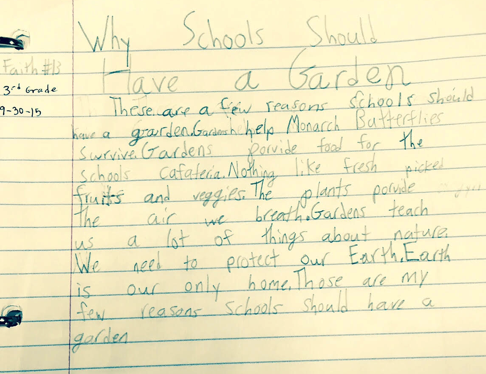 Why Schools Should
Have a Garden
Faith #13
3rd Grade
9-30-15
These are a few reasons schools should
have a grarden. Gardens help Monarch Butterflies
survive. Gardens porvide food for the
schools cafateria. Nothing like fresh picked
fruits and veggies. The plants porvde
the air we breath. Gardens teach
us a lot of things about nature.
We need to protect our Earth. Earth
is our only home. Those are my
few reasons schools should have a
garden